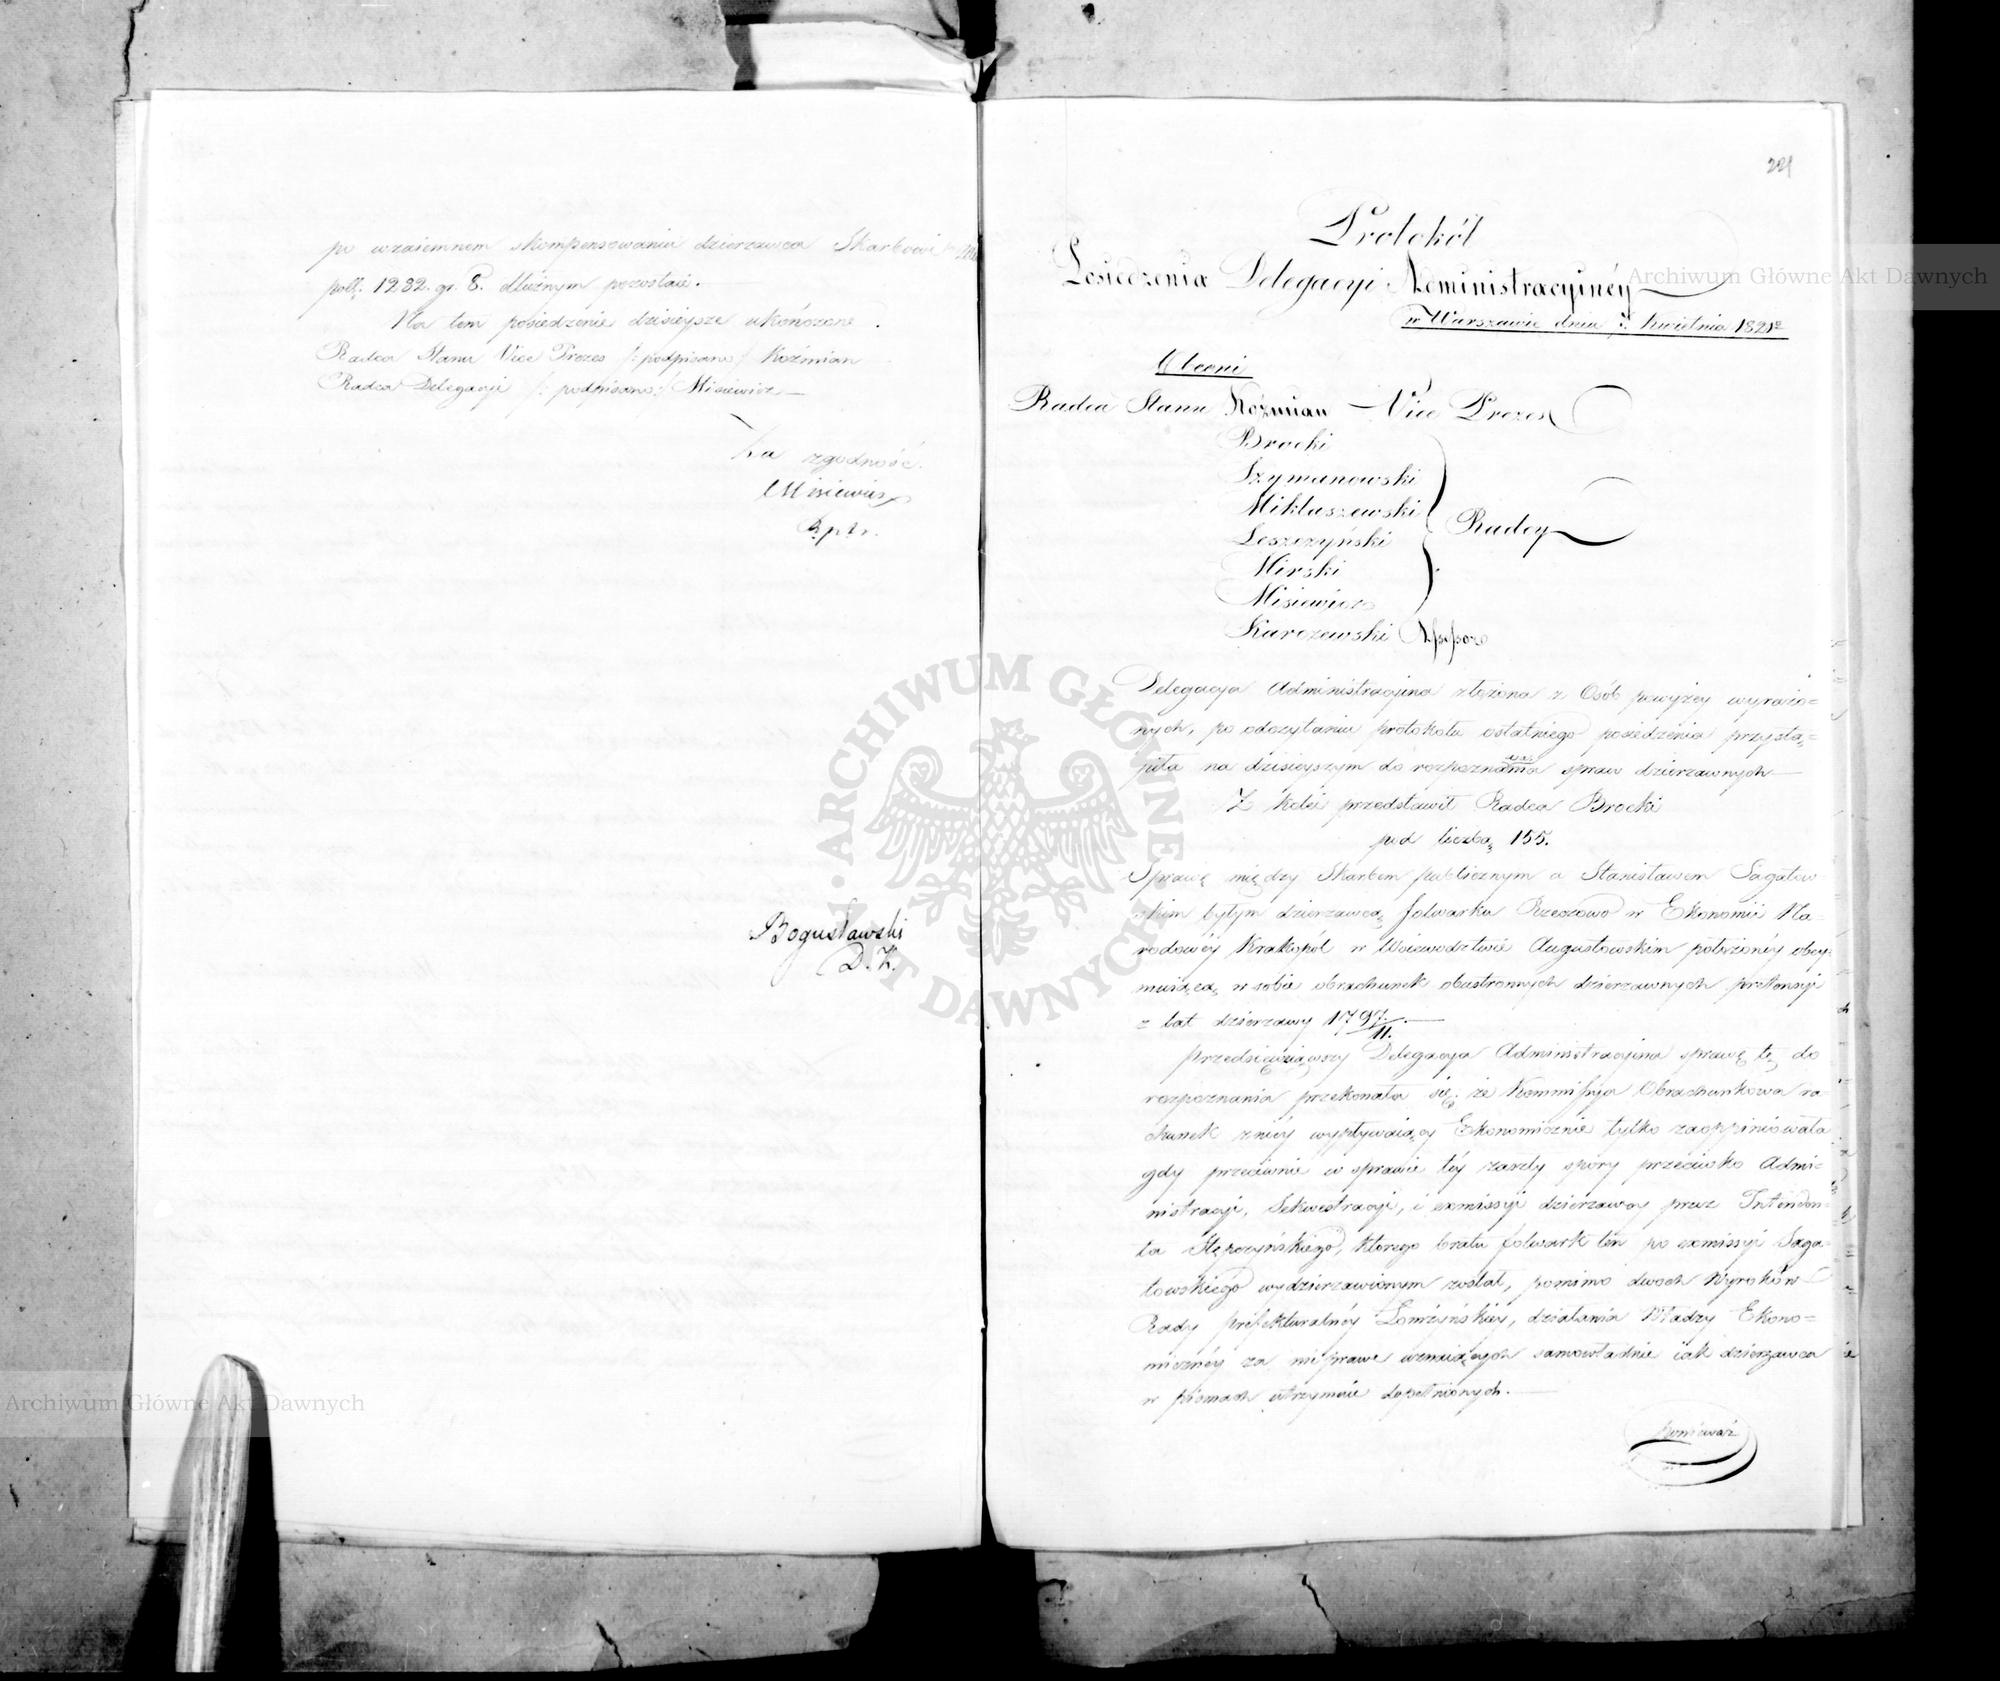 po wzaiemnem skompensowaniu dzierzawca Skarbowi
poll. 1232. gr. 8. dłużnym pozostaie.
Na tem posiedzenie dzisieysze ukończone.
Radca Stanu Vice Prezes /: podpisano / Koźmian
Radca Delegacyi /: podpisano :/ Misiewicz
Za zgodność.
Misiewicz
Bogusławski
D. K.
221
Protokół
Posiedzenia Delegacyi Administracyinéy
w Warszawie dnia Kwietnia 1821
Obecni
Radca Stanu Koźmian Vice Prezes
Brocki
Szymanowski
Miklaszewski
Leszczyński Radcy
Mirski
Misiewicz
Karczewski Assessor
Delegacya Administracyina złożona z Osób powyżey wyrażo=
nych, po odczytaniu protokołu ostatniego posiedzenia przystą=
piła na dzisieyszym do rozpoznania spraw dzierzawnych
Z kolei przedstawił Radca Brocki
pod liczbą 155.
Sprawę między Skarbem publicznym a Stanisławem Sagatow
skim byłym dzierzawcą folwarku Rzeszowo w Ekonomii Na=
rodowéy Krakopól w Woiewodztwie Augustowskim położonéy obey=
muiącą w sobie obrachunek obustronnych dzierzawnych pretensyi
z lat dzierzawy 1797/11.
przedsięwziąwszy Delegacya Administracyina sprawę tę do
rozpoznania przekonała się, że Kommissya Obrachunkowa ra=
chunek z niéy wypływaiący Ekonomicznie tylko zaopiniowała
gdy przeciwnie w sprawie téy zaszły spory przeciwko Admi=
nistracyi, Sekwestracyi, i exmissyi dzierzawcy przez Intenden=
ta Stępczyńskiego, którego bratu folwark ten po exmissyi Saga=
towskiego wydzierzawionym został, pomimo dwóch Wyroków
Rady prefekturalnéy Łomżyńskiéy, działania Władzy Ekono=
micznéy za nieprawe uznaiących samowładnie iak dzierzawca
w pismach utrzymuie dopełnionych.
ponieważ
Archiwum Główne Akt Dawnych
Archiwum Główne Akt Dawnych
ARCHIWUM GŁÓWNE AKT DAWNYCH